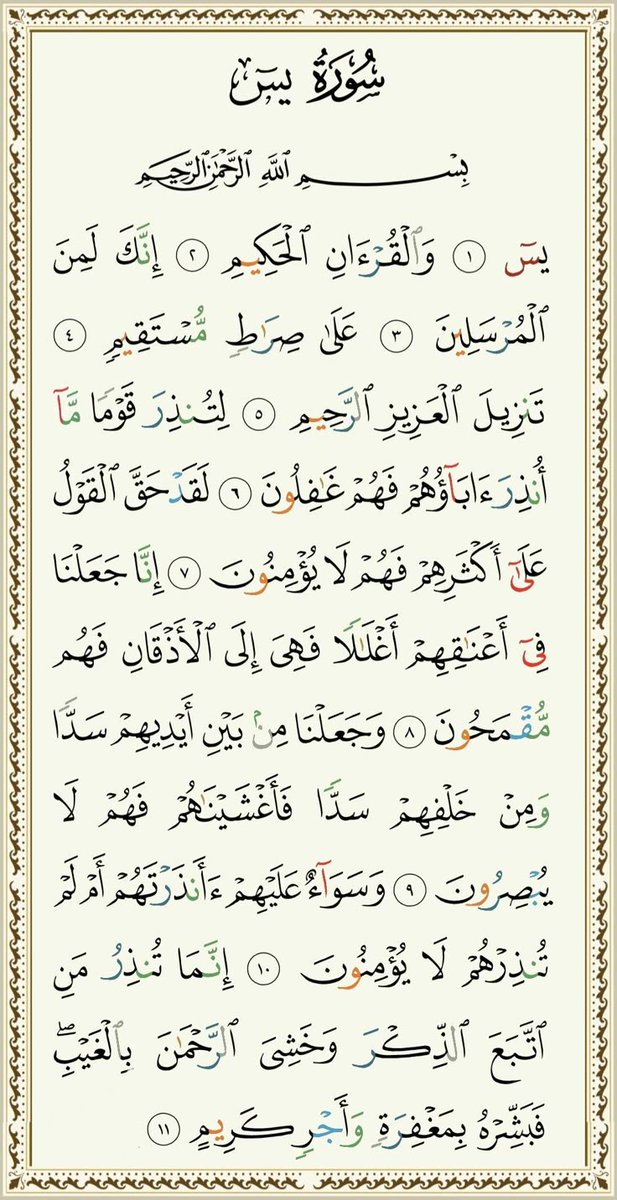 سُورَةُ يسٓ
بِسْمِ ٱللَّهِ ٱلرَّحْمَٰنِ ٱلرَّحِيمِ
يسٓ ١ وَٱلْقُرْءَانِ ٱلْحَكِيمِ ٢ إِنَّكَ لَمِنَ
ٱلْمُرْسَلِينَ ٣ عَلَىٰ صِرَٰطٍ مُّسْتَقِيمٍ ٤
تَنزِيلَ ٱلْعَزِيزِ ٱلرَّحِيمِ ٥ لِتُنذِرَ قَوْمًا مَّآ
أُنذِرَ ءَابَآؤُهُمْ فَهُمْ غَٰفِلُونَ ٦ لَقَدْ حَقَّ ٱلْقَوْلُ
عَلَىٰٓ أَكْثَرِهِمْ فَهُمْ لَا يُؤْمِنُونَ ٧ إِنَّا جَعَلْنَا
فِىٓ أَعْنَٰقِهِمْ أَغْلَٰلًا فَهِىَ إِلَى ٱلْأَذْقَانِ فَهُم
مُّقْمَحُونَ ٨ وَجَعَلْنَا مِنۢ بَيْنِ أَيْدِيهِمْ سَدًّا
وَمِنْ خَلْفِهِمْ سَدًّا فَأَغْشَيْنَٰهُمْ فَهُمْ لَا
يُبْصِرُونَ ٩ وَسَوَآءٌ عَلَيْهِمْ ءَأَنذَرْتَهُمْ أَمْ لَمْ
تُنذِرْهُمْ لَا يُؤْمِنُونَ ١٠ إِنَّمَا تُنذِرُ مَنِ
ٱتَّبَعَ ٱلذِّكْرَ وَخَشِىَ ٱلرَّحْمَٰنَ بِٱلْغَيْبِۖ
فَبَشِّرْهُ بِمَغْفِرَةٍ وَأَجْرٍ كَرِيمٍ ١١